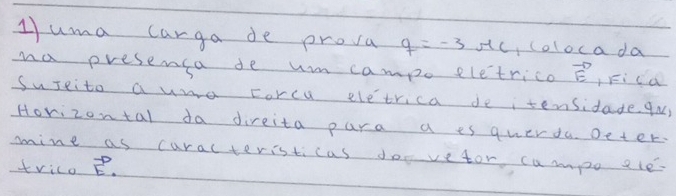 1) uma carga de prova q = -3 μC, colocada
na presença de um campo elétrico E⃗, Fica
Sujeito a uma Forca elétrica de itensidade 9N,
Horizontal da direita para a esquerda. Deter-
mine as características do vetor campo elé-
trico E⃗.